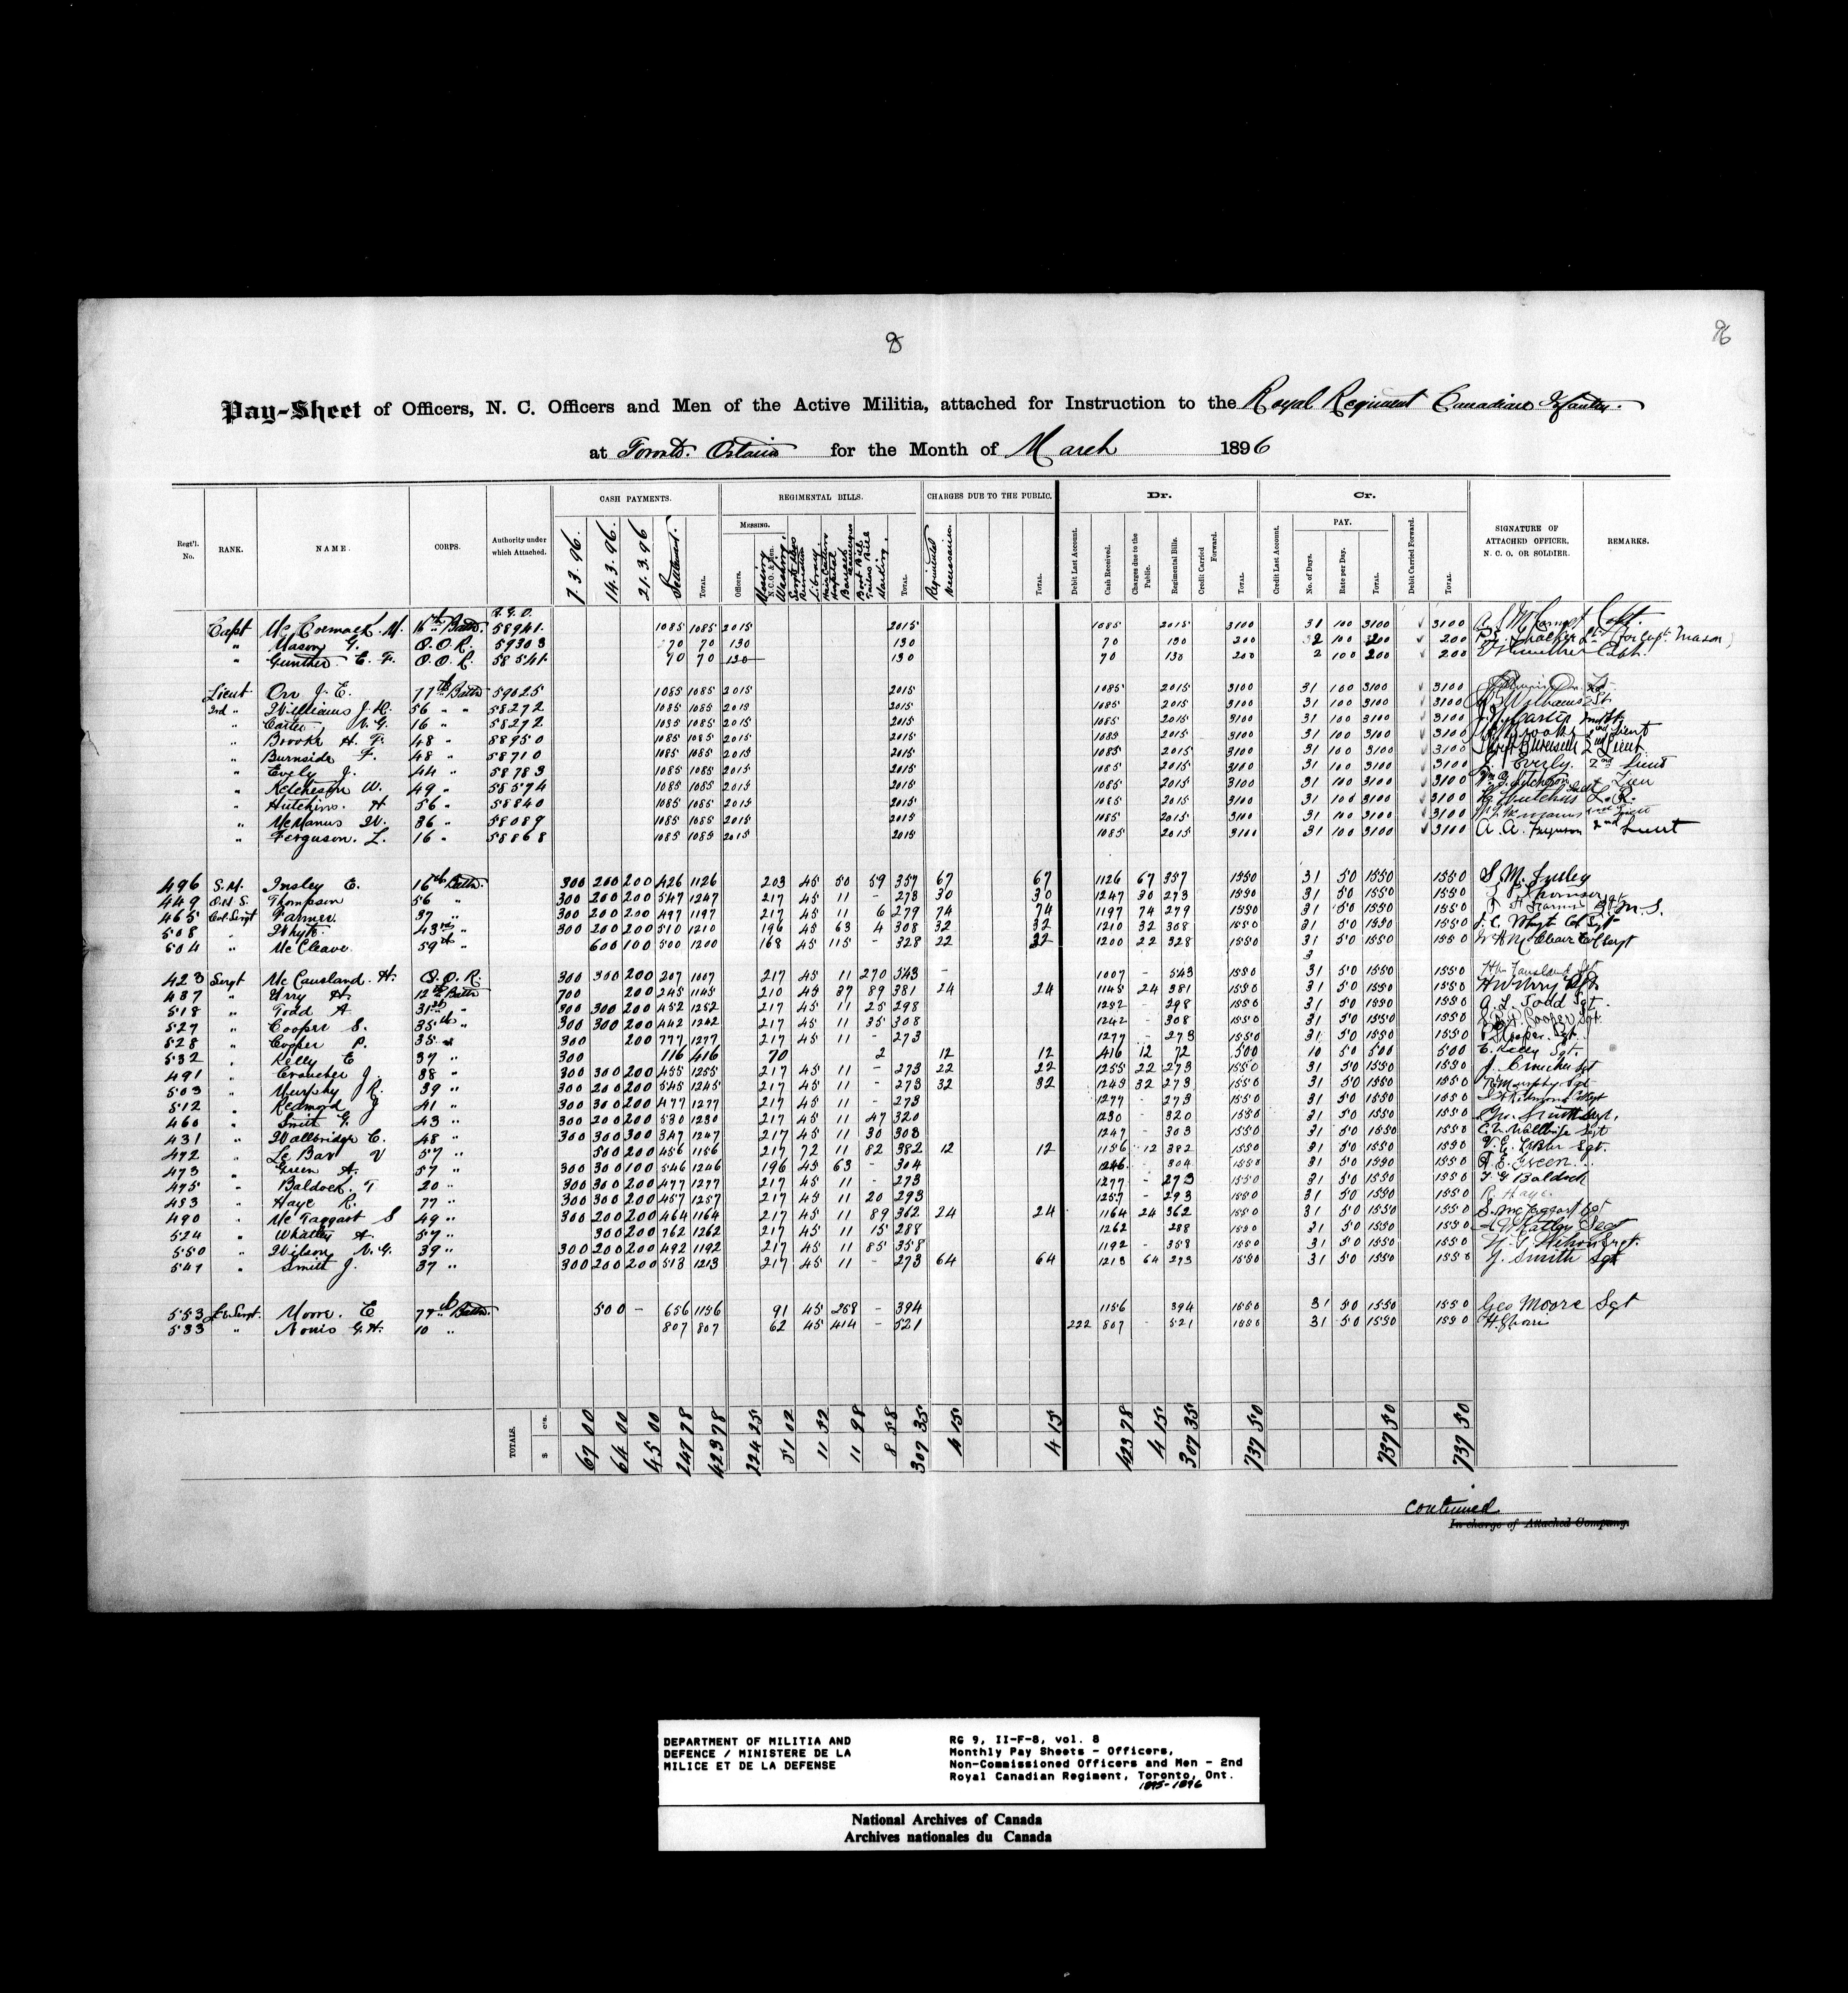 8
96
Pay-Sheet of Officers, N. C. Officers and Men of the Active Militia, attached for Instruction to the Royal Regiment Canadian Infantry.
at Toronto. Ontario for the Month of March 1896
CASH PAYMENTS. REGIMENTAL BILLS. CHARGES DUE TO THE PUBLIC. Dr. Cr.
Regt'l. No. RANK. NAME. CORPS. Authority under which Attached. 7.3.96. 14.3.96. 21.3.96 Settlement. TOTAL. MESSING. Officers. N.C.O. & Men. TOTAL. TOTAL. Debit Last Account. Cash Received. Charges due to the Public. Regimental Bills. Credit Carried Forward. TOTAL. Credit Last Account. PAY. No. of Days. Rate per Day. TOTAL. Debit Carried Forward. TOTAL. SIGNATURE OF ATTACHED OFFICER, N. C. O. OR SOLDIER. REMARKS.
Capt McCormack. M. 16th Battn. 58941 1085 1085 2015 2015 1085 2015 3100 31 100 3100 3100 Capt.
" Mason G. Q.O.R. 59303 70 70 130 130 70 130 200 2 100 200 200 (for Capt. Mason)
" Gunther E. F. Q.O.R. 58541 70 70 130 130 70 130 200 2 100 200 200 Capt.
Lieut Orr J. E. 77th Battn 59025 1085 1085 2015 2015 1085 2015 3100 31 100 3100 3100
2nd " Williams J. H. 56 " " 58272 1085 1085 2015 2015 1085 2015 3100 31 100 3100 3100
" Carter N. G. 16 " 58272 1085 1085 2015 2015 1085 2015 3100 31 100 3100 3100
" Brooke H. F. 48 " 58950 1085 1085 2015 2015 1085 2015 3100 31 100 3100 3100 2nd Lieut
" Burnside F. 48 " 58710 1085 1085 2015 2015 1085 2015 3100 31 100 3100 3100 2nd Lieut
" Evely J. 44 " 58783 1085 1085 2015 2015 1085 2015 3100 31 100 3100 3100 J. Evely. 2nd Lieut
" Ketcheson W. 49 " 58574 1085 1085 2015 2015 1085 2015 3100 31 100 3100 3100
" Hutchins. H 56 " 58840 1085 1085 2015 2015 1085 2015 3100 31 100 3100 3100
" McManus W. 36 " 58089 1085 1085 2015 2015 1085 2015 3100 31 100 3100 3100
" Ferguson. L. 16 " 58868 1085 1085 2015 2015 1085 2015 3100 31 100 3100 3100 A. A. Ferguson 2nd Lieut
496 S.M. Insley E. 16th Battn. 300 200 200 426 1126 203 45 50 59 357 67 67 1126 67 357 1550 31 50 1550 1550 S. M. Insley
449 Q.M.S. Thompson 56 " 300 200 200 547 1247 217 45 11 - 273 30 30 1247 30 273 1550 31 50 1550 1550
465 Col. Sergt Farmer 37 " 300 200 200 497 1197 217 45 11 6 279 74 74 1197 74 279 1550 31 50 1550 1550
508 " Whyte 43rd " 300 200 200 510 1210 196 45 63 4 308 32 32 1210 32 308 1550 31 50 1550 1550
504 " McCleave. 59th " 600 100 500 1200 168 45 115 - 328 22 22 1200 22 328 1550 31 50 1550 1550
423 Sergt McCausland. H. Q.O.R. 300 300 200 207 1007 217 45 11 270 543 - 1007 - 543 1550 31 50 1550 1550
487 " Urry H 12th Battn 700 200 245 1145 210 45 37 89 381 24 24 1145 24 381 1550 31 50 1550 1550
518 " Todd A 31st " 300 300 200 452 1252 217 45 11 25 298 1252 298 1550 31 50 1550 1550 A. L. Todd Sgt.
527 " Cooper S. 35th " 300 300 200 442 1242 217 45 11 35 308 1242 - 308 1550 31 50 1550 1550
528 " Cooper P. 35 " 300 200 777 1277 217 45 11 - 273 1277 - 273 1550 31 50 1550 1550 P. Cooper. Sgt.
532 " Kelly E 37 " 300 116 416 70 2 12 12 416 12 72 500 10 50 500 500 E. Kelly Sgt.
491 " Croucher J. 38 " 300 300 200 455 1255 217 45 11 - 273 22 22 1255 22 273 1550 31 50 1550 1550
503 " Murphy R. 39 " 300 200 200 545 1245 217 45 11 - 273 32 32 1245 32 273 1550 31 50 1550 1550
512 " Redmond J 41 " 300 300 200 477 1277 217 45 11 - 273 1277 - 273 1550 31 50 1550 1550
460 " Smith G. 43 " 300 200 200 530 1230 217 45 11 47 320 1230 - 320 1550 31 50 1550 1550
431 " Wallbridge C. 48 " 300 300 300 347 1247 217 45 11 30 303 1247 - 303 1550 31 50 1550 1550
472 " Le Bar V 57 " 500 200 456 1156 217 72 11 82 382 12 12 1156 12 382 1550 31 50 1550 1550
473 " Green A. 57 " 300 300 100 546 1246 196 45 63 - 304 1246 304 1550 31 50 1550 1550 A. E. Green
475 " Baldock. T 20 " 300 300 200 477 1277 217 45 11 - 273 1277 - 273 1550 31 50 1550 1550 T G Baldock
483 " Haye R. 77 " 300 300 200 457 1257 217 45 11 20 293 1257 - 293 1550 31 50 1550 1550 R. Haye
490 " McTaggart S 49 " 300 200 200 464 1164 217 45 11 89 362 24 24 1164 24 362 1550 31 50 1550 1550 S. McTaggart Sgt
524 " Whatley A. 57 " 300 200 762 1262 217 45 11 15 288 1262 288 1550 31 50 1550 1550
550 " Wilson N. G. 39 " 300 200 200 492 1192 217 45 11 85 358 1192 - 358 1550 31 50 1550 1550 N. G. Wilson Sergt.
541 " Smith J. 37 " 300 200 200 513 1213 217 45 11 - 273 64 64 1213 64 273 1550 31 50 1550 1550 J. Smith Sgt
553 Moore. E 77th Battn. 500 - 656 1156 91 45 258 - 394 1156 394 1550 31 50 1550 1550 Geo Moore Sgt
533 " Norris G. H. 10 " 807 807 62 45 414 - 521 222 807 - 521 1550 31 50 1550 1550
TOTALS. $ c's. 67 00 64 00 45 00 247 78 423 78 224 25 51 02 11 52 11 98 8 58 307 35 4 15 4 15 423 78 4 15 307 35 737 50 737 50 737 50
Continued
In charge of Attached Company.
DEPARTMENT OF MILITIA AND
DEFENCE / MINISTERE DE LA
MILICE ET DE LA DEFENSE
RG 9, II-F-8, vol. 8
Monthly Pay Sheets - Officers,
Non-Commissioned Officers and Men - 2nd
Royal Canadian Regiment, Toronto, Ont.
1895-1896
National Archives of Canada
Archives nationales du Canada